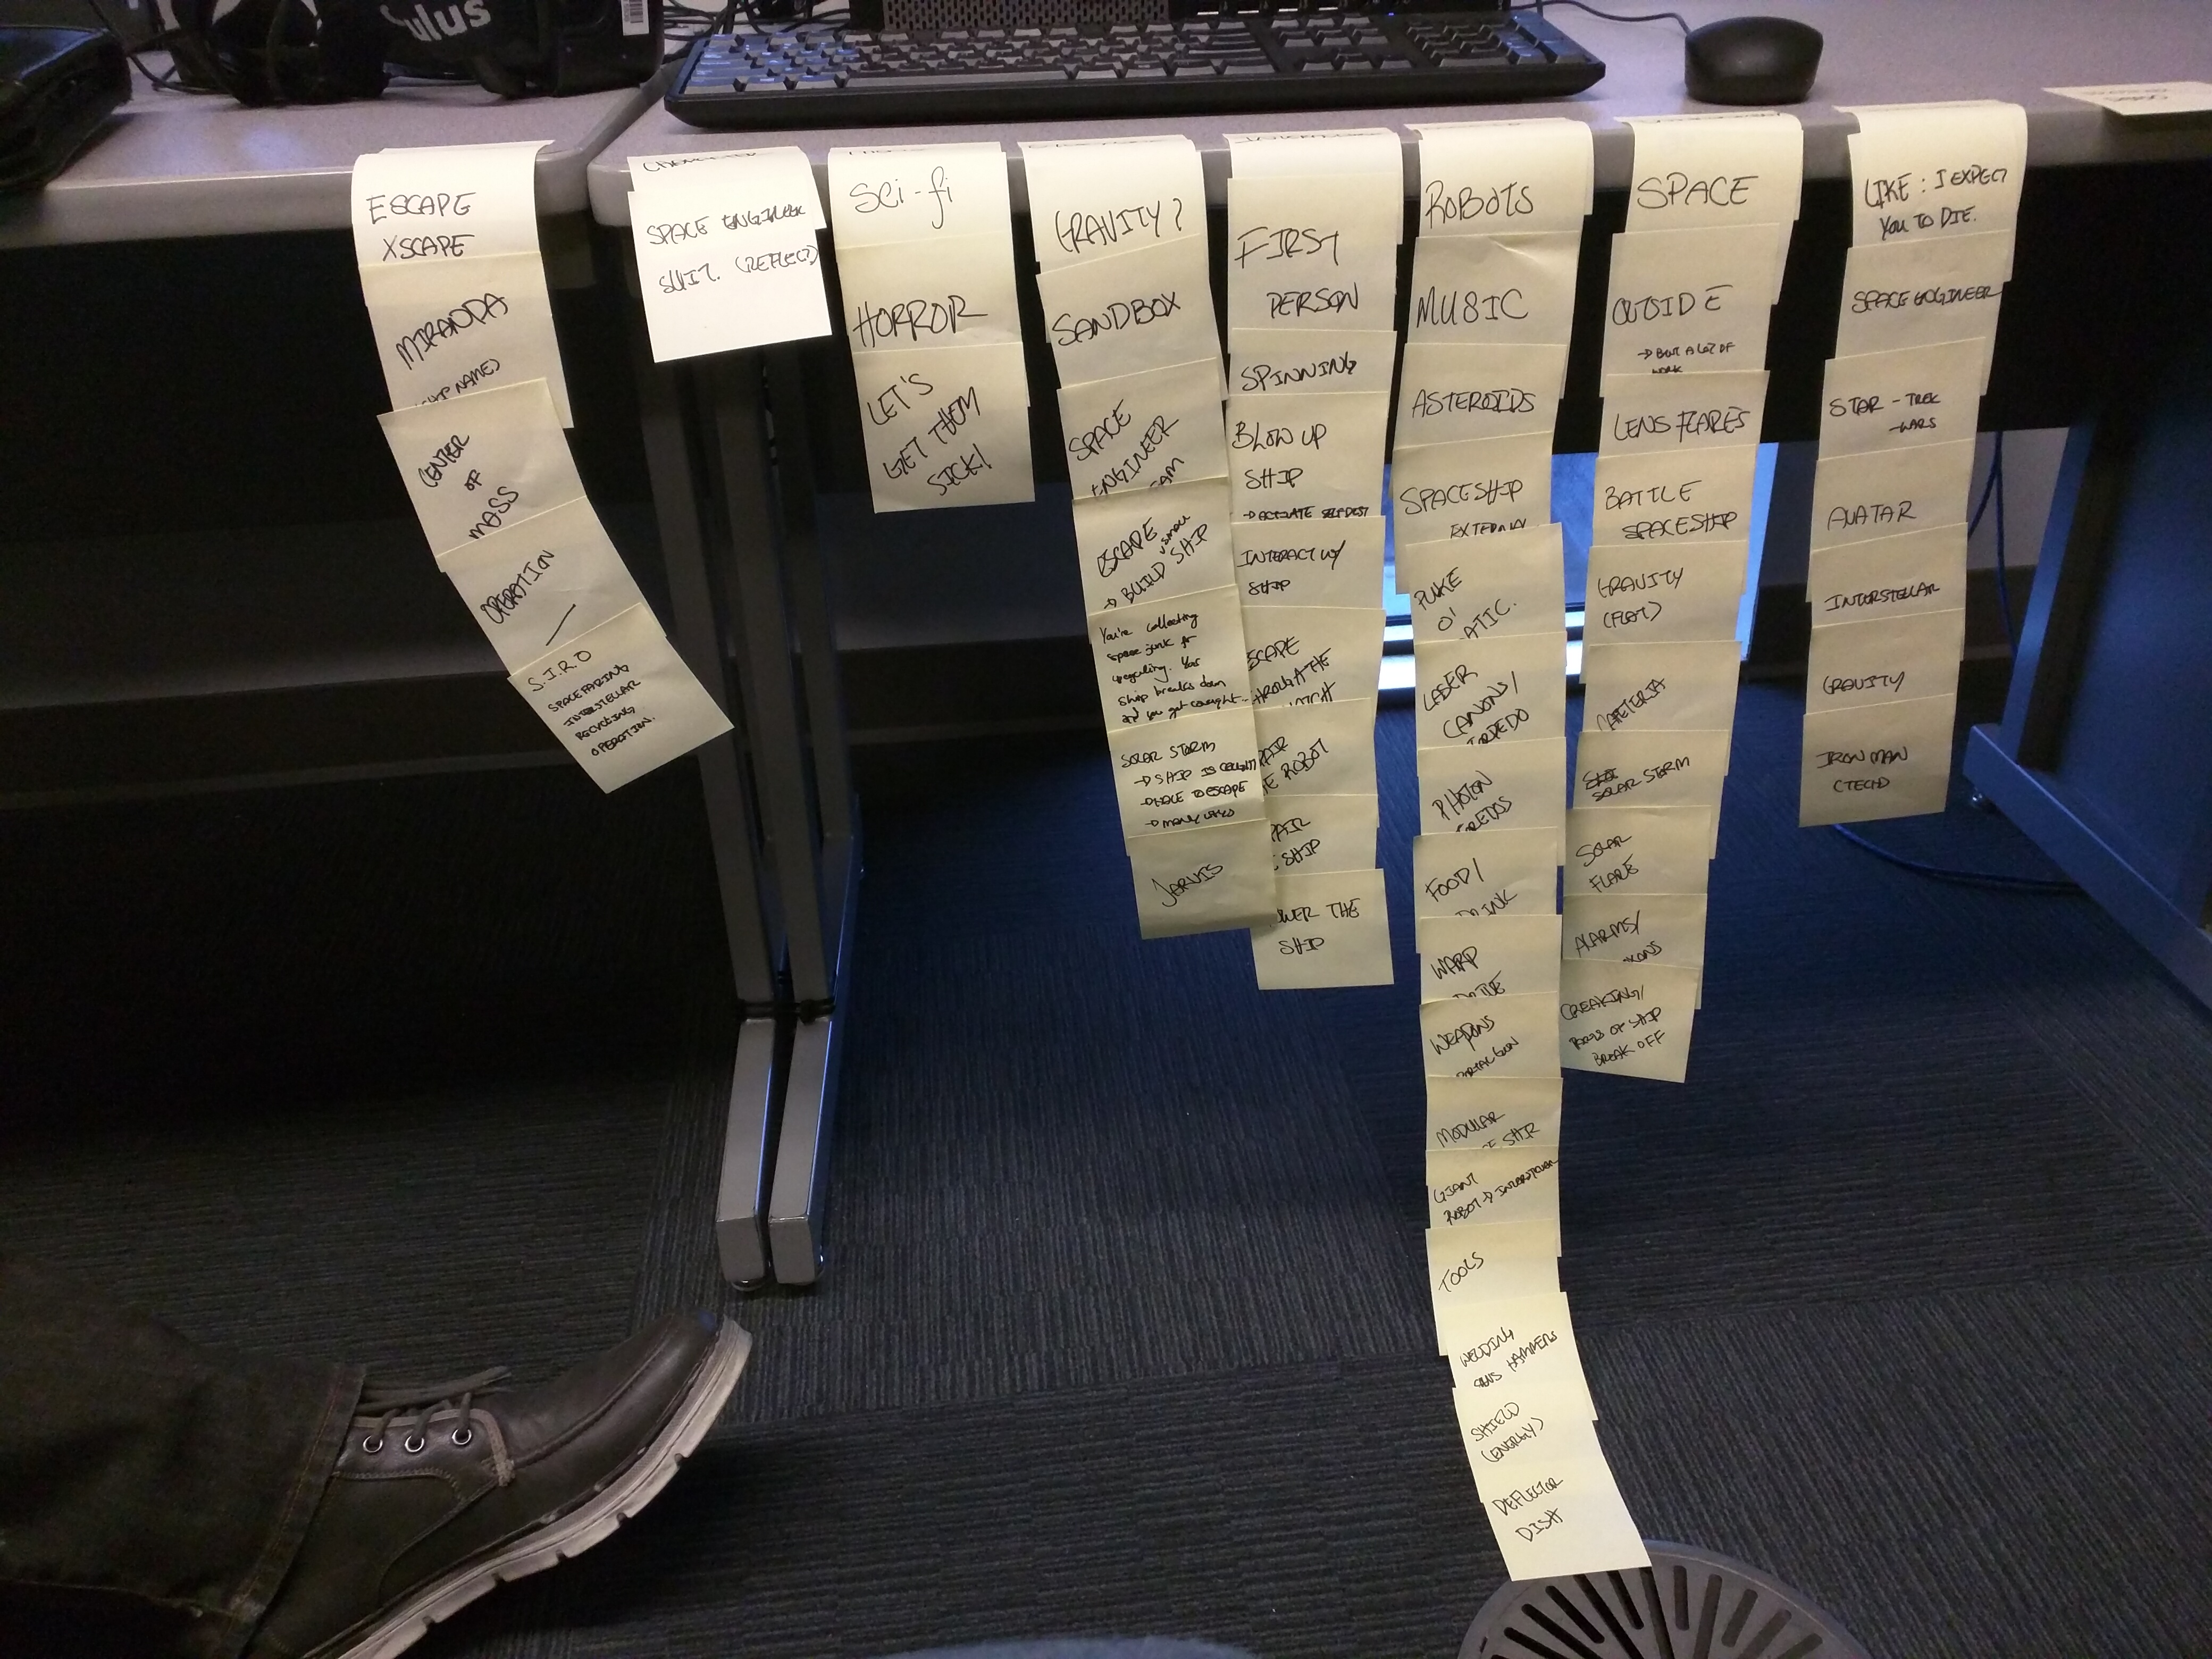 ulus
ESCAPE
XSCAPE
MIRANDA
NAME)
CENTER
OF
MASS
OPERATION
S.I.R.O
SPACEFARING
INTERSTELLAR
RECYCLING
OPERATION.
SPACE ENGINEER
SUIT. (REFLECT)
Sci-fi
HORROR
LET'S
GET THEM
SICK!
GRAVITY?
SANDBOX
SPACE
ENGINEER
ESCAPE
→ BUILD SHIP
You're collecting
space junk for
recycling. Your
ship breaks down
and you get caught...
SOLAR STORM
→ SHIP IS CAUGHT
→ HAVE TO ESCAPE
→ MANY WAYS
JARVIS
FIRST
PERSON
SPINNING
BLOW UP
SHIP
→ ACTIVATE SELF DEST
INTERACT W/
SHIP
SCAPE
THROUGH THE
PAIR
ROBOT
PAIR
SHIP
OWER THE
SHIP
ROBOTS
MUSIC
ASTEROIDS
SPACESHIP
EXTERNAL
PUKE
O'
ATIC.
LASER
CANONS/
PHOTON
FOOD/
WARP
WEAPONS
MODULAR
SHIP
GIANT
ROBOT → INTERSTELLAR
TOOLS
WELDING
HAMMERS
SHIELD
(ENERGY)
DEFLECTOR
DISH
SPACE
OUTSIDE
→ BUT A LOT OF
WORK
LENS FLARES
BATTLE
SPACESHIP
GRAVITY
(FLOAT)
CAFETERIA
SOLAR STORM
SOLAR
FLARE
ALARMS/
CREAKING/
PARTS OF SHIP
BREAK OFF
LIKE : I EXPECT
YOU TO DIE.
SPACE ENGINEER
STAR - TREK
- WARS
AVATAR
INTERSTELLAR
GRAVITY
IRON MAN
(TECH)